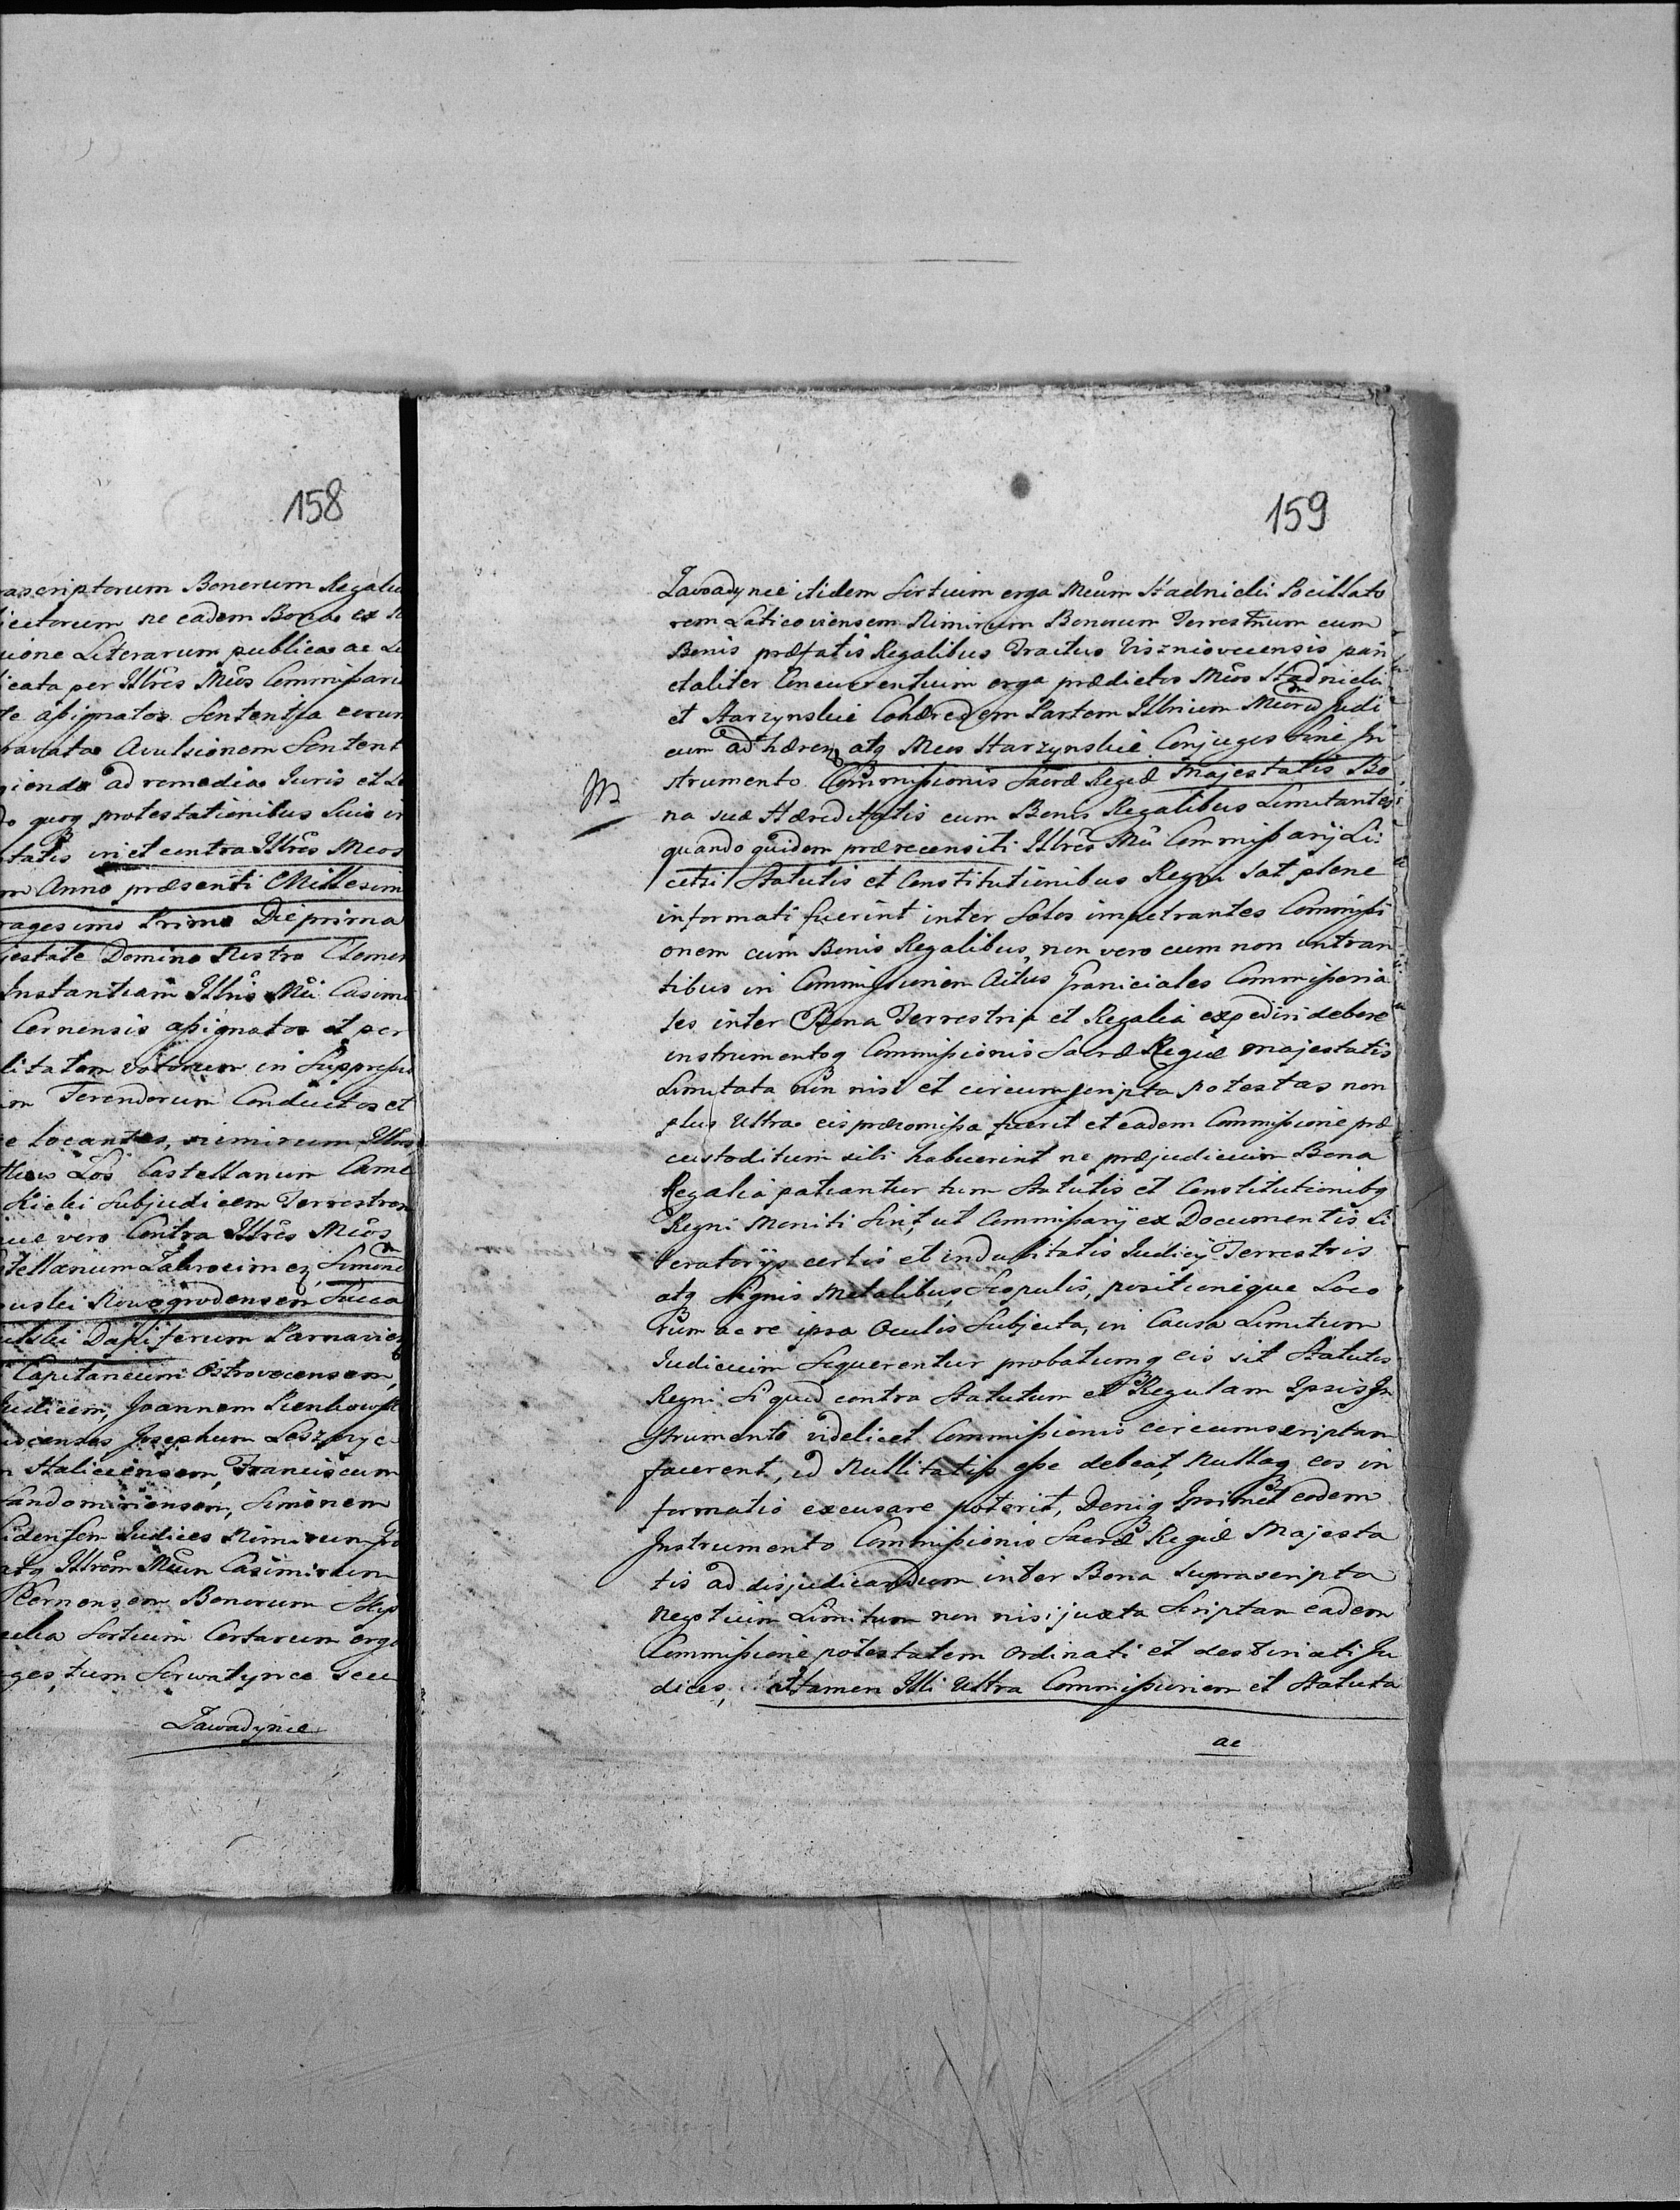 158
ascriptorum Bonorum Regaliu
ne eadem Bona ex
Literarum publica ac
per Illres Mcos Commissari
assignatos Sententia eorum
Avulsionem Sentent
ad remedia Juris et
quoq protestationibus Suis
et contra Illres Mcos
Anno præsenti Millesimo
ragesimo Primo Die prima
jestate Domino Nostro Clemen
Instantiam Illris Mci Casimi
Cernensis assignatos et per
litatem votorum in Suppressi
Ferendorum Conductos et
e locantes, nimirum Illres
Los Castellanum Came
Subjudicem Terrestrem
vero Contra Illres Mcos
stellanum Zakrocimen, Simone
Nowogrodensem Succa
Dapiferum Parnavien
Capitaneum Ostrovecensem,
Judicem, Joannem Pienkowski
Josephum Leszczyc
Haliciensem, Franciscum
Sandomiriensem, Simonem
idensem Judices Nimirum
atq Illrem Mcum Casimirum
Cernensem Bonorum
Sortium Certarum erga
ges, tum Serwatynce seu
Zawadynce
159
Zawadynce itidem Sortium erga Mcum Stadnicki Pocillato
rem Laticoviensem Nimirum Bonorum Terrestrium cum
Bonis præfatis Regalibus Tractus Visznioveciensis pun
ctaliter Concurrentium erga prædictos Mcos Stadnicki
et Starzynskie Cohæredem Partem Illrium Mcorum Judi
cum adhæren atq Mcos Starzynskie Conjuges Sine In
strumento Commissionis Sacræ Regiæ Majestatis Bo
na suæ Hæreditatis cum Bonis Regalibus Limitantes
quando quidem prærecensiti Illres Mci Commissarij Li
cet Statutis et Constitutionibus Regni Sat plene
informati fuerint inter Solos impetrantes Commissi
onem cum Bonis Regalibus, non vero cum non intran
tibus in Commissionem Actus Graniciales Commissoria
les inter Bona Terrestria et Regalia expediri debere
instrumentoq Commissionis Sacræ Regiæ Majestatis
Limitata non nisi et circumscripta potestas non
plus Ultra eis præromissa fuerit et eadem Commissione præ
custoditum sibi habuerint ne præjudicium Bona
Regalia patiantur tum Statutis et Constitutionibq
Regni Moniti Sint, ut Commissarij ex Documentis Li
teratorijs certis et indubitatis Judicij Terrestris
atq Signis Metalibus, Scopulis, positioneque Loco
rum ac re ipsa Oculis Subjecta, in Causa Limitum
Judicium Sequerentur probatumq eis sit Statutis
Regni Si quid contra Statutum et Regulam Ipsis In
strumento videlicet Commissionis circumscriptam
facerent, id Nullitatis esse debeat, Nullaq eos in
formatio excusare poterit, Deniq Ipsimet eodem
Instrumento Commissionis Sacræ Regiæ Majesta
tis ad disjudicandum inter Bona Suprascripta
Negotium Limitum non nisi juxta Scriptam eadem
Commissione potestatem Ordinati et destinati Ju
dices, attamen Illi Ultra Commissionem et Statuta
ac